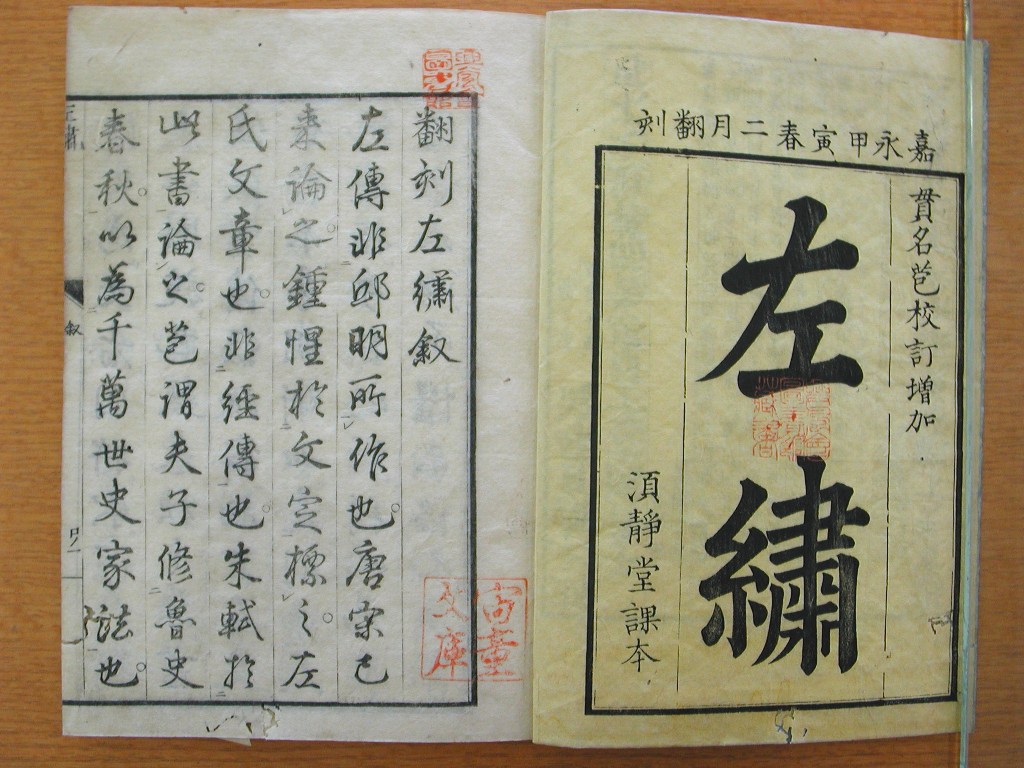 嘉永甲寅春二月翻刻
貫名苞校訂增加
左繡
須靜堂課本
翻刻左繡敘
左傳非邱明所作也唐宋已
来論之鍾惺於文定標之左
氏文章也非經傳也朱軾於
此書論之苞謂夫子修魯史
春秋以為千萬世史家法也